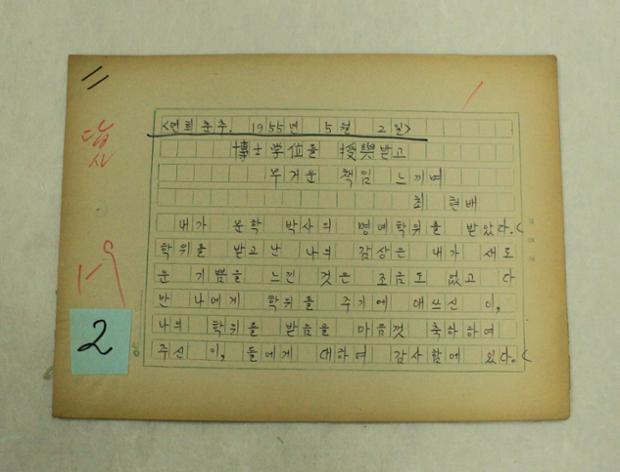 <연희춘추. 1955년 5월 2일>
博士学位를 授與받고
무거운 책임 느끼며
최 현배
내가 문학 박사의 명예학위를 받았다.
학위를 받고 난 나의 감상은 내가 새로
운 기쁨을 느낀 것은 조금도 없고 다
만 나에게 학위를 주기에 애쓰신 이,
나의 학위를 받음을 마음껏 축하하여
주신 이, 들에게 대하여 감사함에 있다.
1-9
2